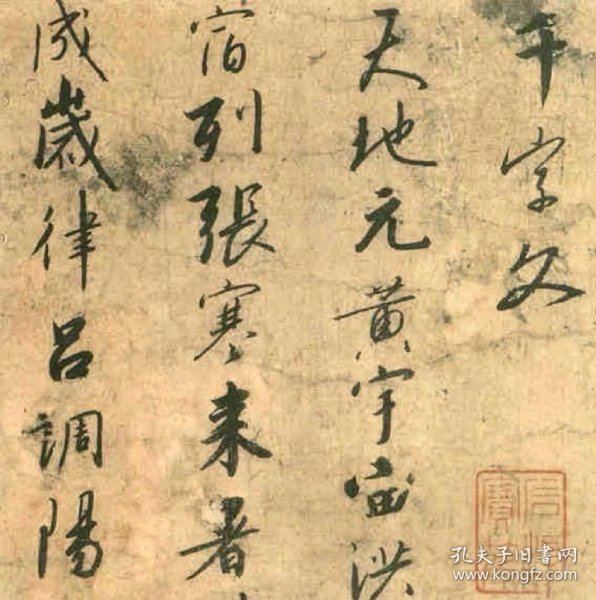 千字文
天地元黄宇宙洪
宿列張寒来暑
成歲律呂調陽
孔夫子旧书网
www.kongfz.com